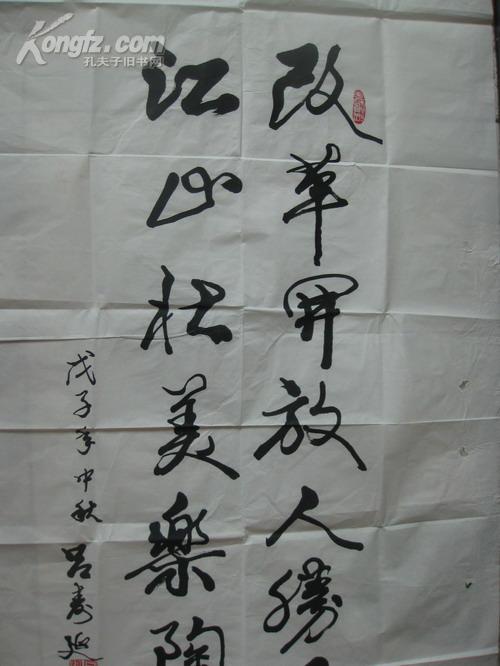 Kongfz.com
孔夫子旧书网
改革開放人勝
江山壮美樂陶
戊子年中秋 吕寿